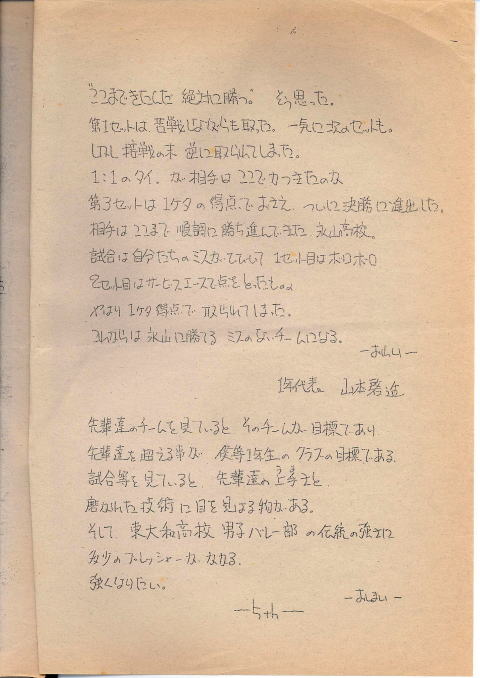 "ここまできたんだ 絶対に勝つ。" そう思った。
第1セットは 苦戦しながらも取った。 一気に次のセットも。
しかし 接戦の末 逆に取られてしまった。
1:1のタイ。 が 相手は ここで力つきたのか
第3セットは 1ケタの得点でおさえ、 ついに決勝に進出した。
相手は ここまで 順調に勝ち進んできた 永山高校。
試合は自分たちのミスがでて 1セット目はボロボロ
2セット目はサービスエースで点をとったものの
やはり 1ケタ得点で 取られてしまった。
これからは 永山に勝てる ミスのないチームになる。
―おしい―
1年代表 山本
先輩達のチームを見ていると そのチームが 目標であり
先輩達を超える事が 僕等1年生の クラブの目標である。
試合等を見ていると、 先輩達の上手さと
磨かれた技術に目を見はる物がある。
そして 東大和高校 男子バレー部 の伝統の強さに
多少のプレッシャーが かかる。
強くなりたい。
―おしまい―
―5th―